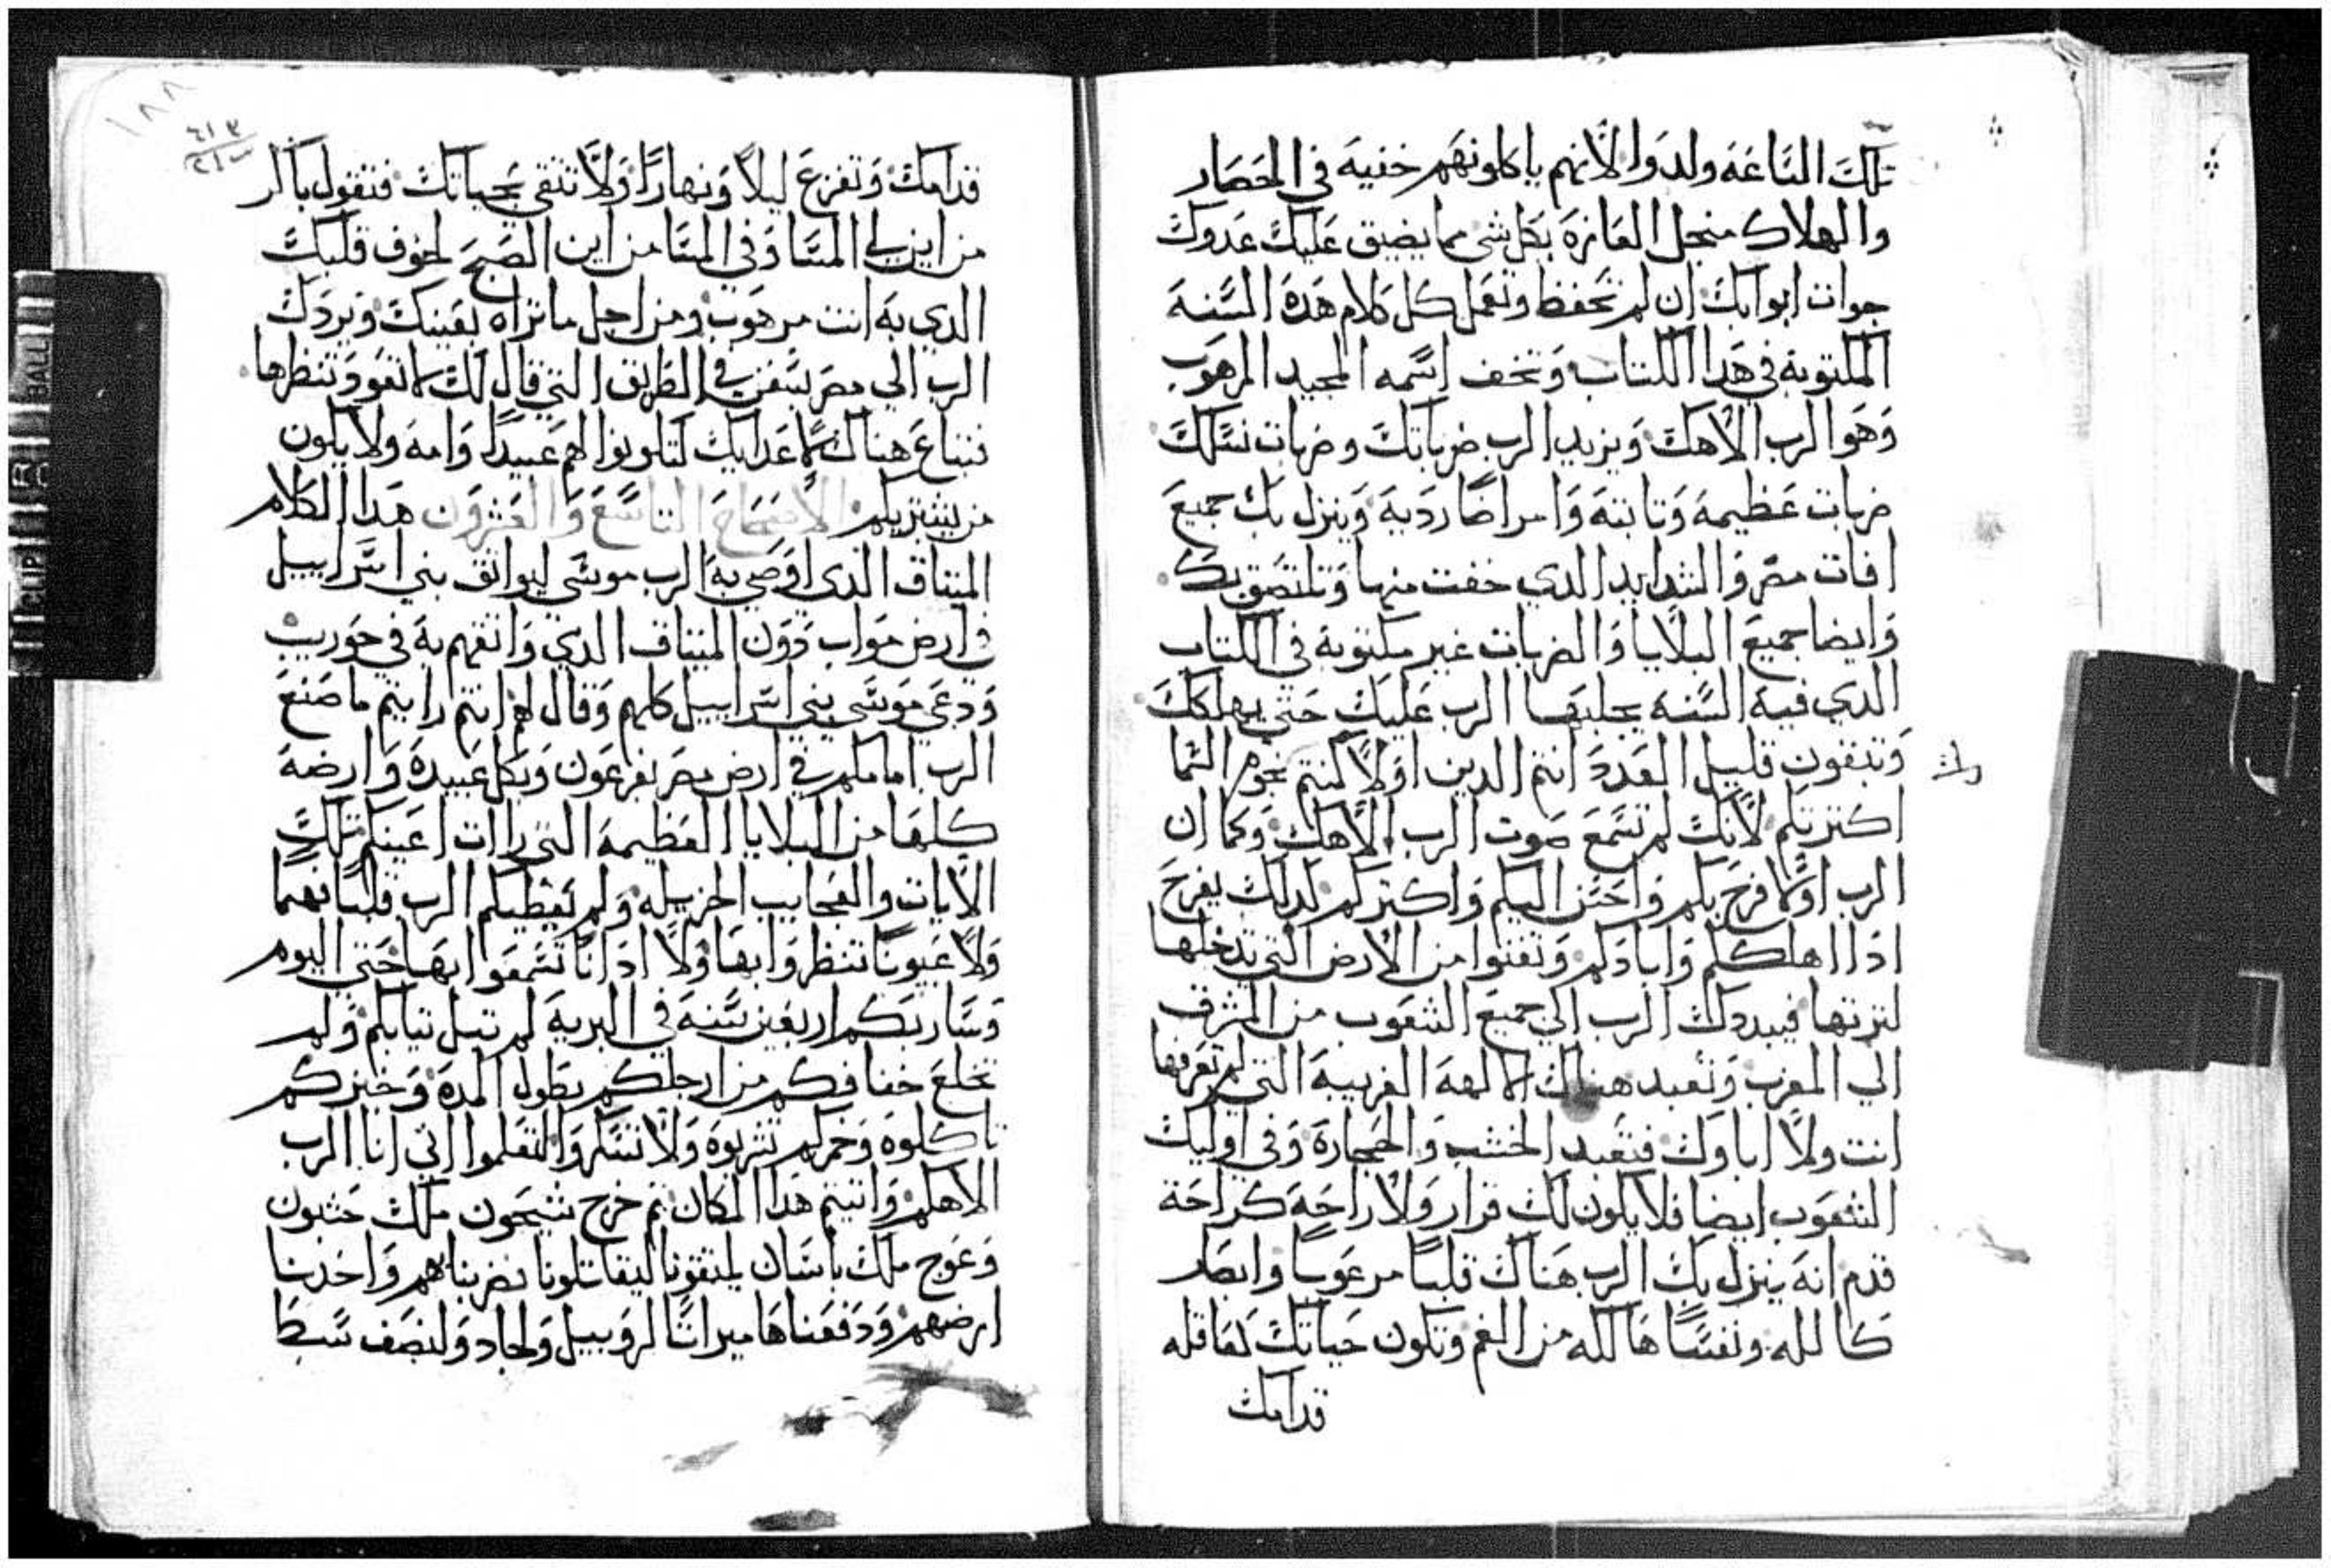 تلك الساعه ولدوا لانهم ياكلونهم خفيه في الحصار
والهلاك منجل العازه بكل شي مما يضيق عليك عدوك
جوات ابوابك ان لم تحفظ وتعمل كل كلام هده السنه
المكتوبه في هدا الكتاب وتخف اسمه المجيد المرهوب
وهو الرب الاهك ويزيد الرب ضرباتك وضربات نسلك
ضربات عظيمه وثابته وامراضا رديه وينزل بك جميع
افات مصر والشدايد الدي خفت منها وتلتصق بك
وايضا جميع البلايا والضربات غير مكتوبه في الكتاب
الدي فيه السنه يجلبها الرب عليك حتي يهلكك
وتبقون قليل العدد انتم الدين اولا كنتم نجوم السما
اكترتكم لانك لم تسمع صوت الرب الاهك وكما ان
الرب اولا فرح بكم واحسن اليكم واكتركم لدلك يفرح
ادا اهلككم وابادكم وتفنوا من الارض التي تدخلها
لترتها فيبددك الرب الي جميع الشعوب من المشرق
الي المغرب وتعبد هناك الالهه الغريبه التي لم تعرفها
انت ولا اباوك فتعبد الخشب والحجاره وفي اوليك
الشعوب ايضا فلا يكون لك قرار ولا راحه كراحة
قدم انه ينزل بك الرب هناك قلبا مرعوبا وابصار
كالله ونفسا هالكه من الغم وتكون حياتك لعاقله
قدامك
١٨٨
قدامك وتفزع ليلا ونهارا ولا تتقي بحياتك فتقول باكر
من اين لي المسا وفي المسا من اين الصبح لخوف قلبك
الدي به انت مرهوب ومن اجل ما تراه بعينك ويردك
الرب الي مصر بسفن في الطريق التي قال لك لا تعود تنظرها
فتباع هناك لاعدايك لتكونوا لهم عبيدا وامه ولا يكون
من يشتريكم الاصحاح التاسع والعشرون هدا الكلام
الميتاق الذي اوصي به الرب موسي ليواثق بني اسراييل
في ارض مواب دون الميتاق الدي واثقهم به في حوريب
ودعي موسي بني اسراييل كلهم وقال لهم انتم رايتم ما صنع
الرب امامكم في ارض مصر بفرعون وبكل عبيده وارضه
كلها من البلايا العظيمه التي رات اعينكم تلك
الايات والعجايب الجزيله ولم يعطيكم الرب قلبا فهما
ولا عيونا تنظروا بها ولا ادانا تسمعوا بها حتي اليوم
وسار بكم اربعين سنه في البريه لم تبل تيابكم ولم
تخلع خفافكم من ارجلكم بطول المده وخبزكم
تاكلوه وخمركم تشربوه ولا تسكروا لتعلموا اني انا الرب
الاهكم واتيتم هدا المكان ثم خرج شيحون ملك حشبون
وعوج ملك باسان يلتقونا ليقاتلونا فضربناهم واخدنا
ارضهم ودفعناها ميراتا لروبيل ولجاد ولنصف سبط